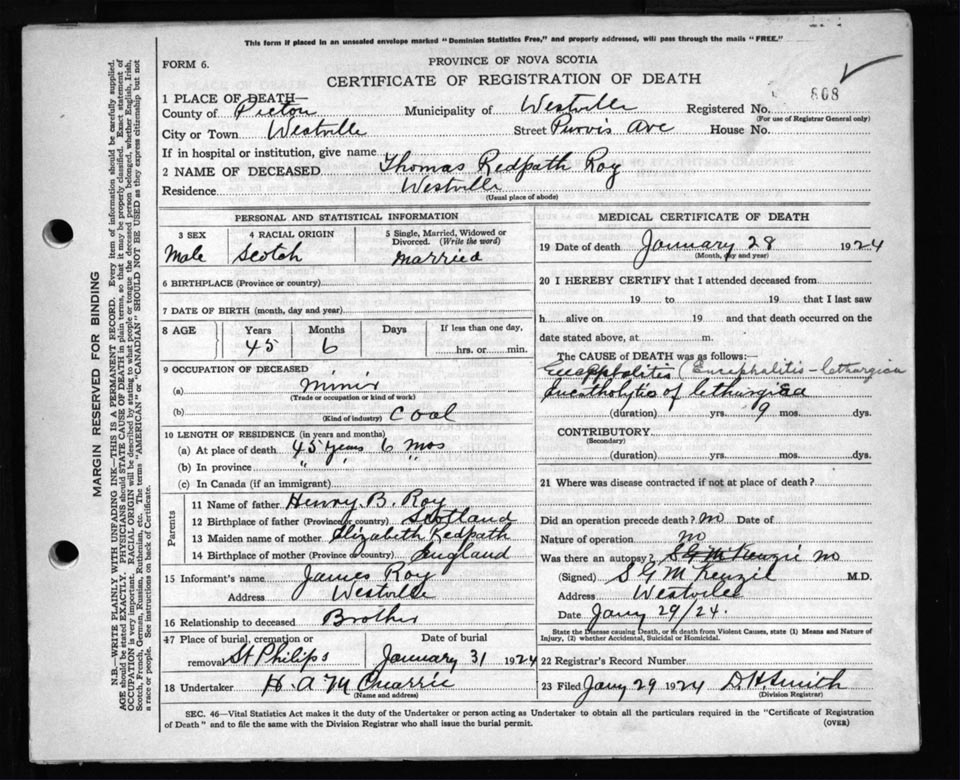 This form if placed in an unsealed envelope marked "Dominion Statistics Free," and properly addressed, will pass through the mails "FREE."
FORM 6.
PROVINCE OF NOVA SCOTIA
CERTIFICATE OF REGISTRATION OF DEATH
1 PLACE OF DEATH—
County of Pictou Municipality of Westville Registered No. 808
(For use of Registrar General only)
City or Town Westville Street Purvis Ave House No.
If in hospital or institution, give name
2 NAME OF DECEASED Thomas Redpath Roy
Residence Westville
(Usual place of abode)
PERSONAL AND STATISTICAL INFORMATION
3 SEX 4 RACIAL ORIGIN 5 Single, Married, Widowed or Divorced. (Write the word)
Male Scotch married
6 BIRTHPLACE (Province or country)
7 DATE OF BIRTH (month, day and year)
8 AGE Years Months Days If less than one day,
45 6 hrs. or min.
9 OCCUPATION OF DECEASED
(a) miner
(Trade or occupation or kind of work)
(b) coal
(Kind of industry)
10 LENGTH OF RESIDENCE (in years and months)
(a) At place of death 45 years 6 mos
(b) In province " " "
(c) In Canada (if an immigrant)
Parents
11 Name of father Henry B. Roy
12 Birthplace of father (Province or country) Scotland
13 Maiden name of mother Elizabeth Redpath
14 Birthplace of mother (Province or country) England
15 Informant's name James Roy
Address Westville
16 Relationship to deceased Brother
17 Place of burial, cremation or removal St Philips Date of burial January 31 1924
18 Undertaker H. A. McQuarrie
(Name and address)
MEDICAL CERTIFICATE OF DEATH
19 Date of death January 28 1924
(Month, day and year)
20 I HEREBY CERTIFY that I attended deceased from
19 to 19 that I last saw
h alive on 19 and that death occurred on the
date stated above, at m.
The CAUSE of DEATH was as follows:
(Encephalitis-lethargica
of
(duration) yrs. 9 mos. dys.
CONTRIBUTORY
(Secondary)
(duration) yrs. mos. dys.
21 Where was disease contracted if not at place of death?
Did an operation precede death? no Date of
Nature of operation no
Was there an autopsy? S G McKenzie no
(Signed) S G McKenzie M.D.
Address Westville
Date Jany 29/24.
State the Disease causing Death, or in death from Violent Causes, state (1) Means and Nature of Injury, (2) whether Accidental, Suicidal or Homicidal.
22 Registrar's Record Number
23 Filed Jany 29 1924 D. H. Smith
(Division Registrar)
SEC. 46—Vital Statistics Act makes it the duty of the Undertaker or person acting as Undertaker to obtain all the particulars required in the "Certificate of Registration
of Death" and to file the same with the Division Registrar who shall issue the burial permit.
(OVER)
MARGIN RESERVED FOR BINDING
N.B.—WRITE PLAINLY WITH UNFADING INK—THIS IS A PERMANENT RECORD. Every item of information should be carefully supplied.
AGE should be stated EXACTLY. PHYSICIANS should STATE CAUSE OF DEATH in plain terms, so that it may be properly classified. Exact statement of
OCCUPATION is very important. RACIAL ORIGIN will be described by stating to what people or tongue the deceased person belonged, whether English, Irish,
Scotch, French, German, Russian, Ruthenian, etc. The terms "AMERICAN" or "CANADIAN" SHOULD NOT BE USED as they express citizenship but not
a race or people. See instructions on back of Certificate.